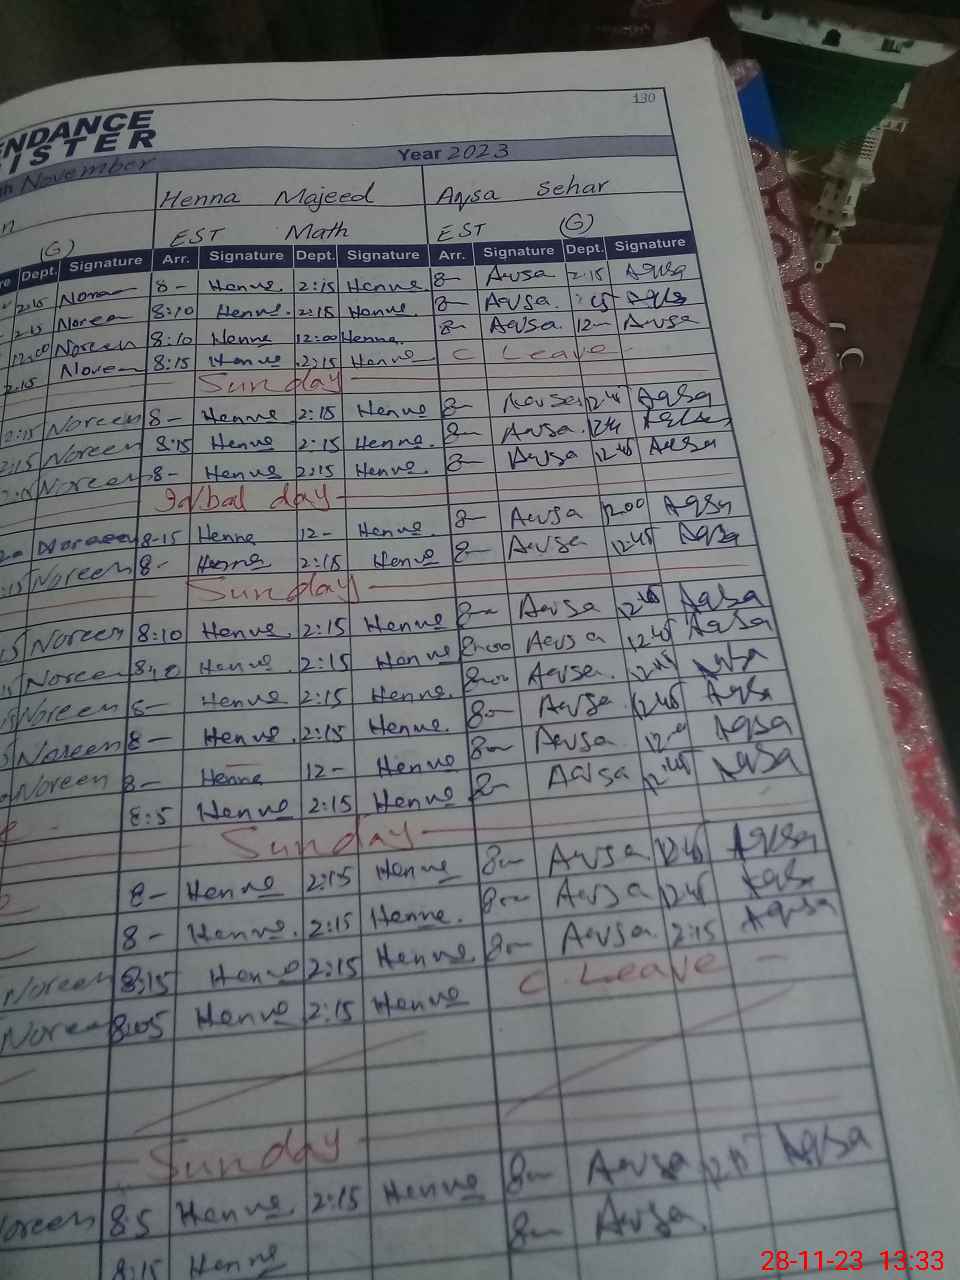 130
NDANCE
ISTER
November Year 2023
Henna Majeed Aqsa Sehar
(G) EST Math EST (G)
Dept. Signature Arr. Signature Dept. Signature Arr. Signature Dept. Signature
2:15 8- Henna 2:15 Henna 8- Aqsa 2:15 Aqsa
2:15 Noreen 8:10 Henna 2:15 Henna 8- Aqsa Aqsa
12:00 Noreen 8:10 Henna 12:00 Henna 8- Aqsa 12- Aqsa
2:15 Noreen 8:15 Henna 2:15 Henna C Leave
Sunday
2:15 Noreen 8- Henna 2:15 Henna 8- Aqsa 12:45 Aqsa
2:15 Noreen 8:15 Henna 2:15 Henna 8- Aqsa Aqsa
Noreen 8- Henna 2:15 Henna 8- Aqsa 12:45 Aqsa
Iqbal day
Noreen 8-15 Henna 12- Henna 8- Aqsa 12:00 Aqsa
:15 Noreen 8- Henna 2:15 Henna 8- Aqsa 12:45 Aqsa
Sunday
Noreen 8:10 Henna 2:15 Henna 8- Aqsa Aqsa
Noreen 8:10 Henna 2:15 Henna 8:00 Aqsa 12:45 Aqsa
Noreen 8- Henna 2:15 Henna 8:00 Aqsa 12:45 Aqsa
Noreen 8- Henna 2:15 Henna 8- Aqsa 12:45 Aqsa
Noreen 8- Henna 12- Henna 8- Aqsa Aqsa
8:5 Henna 2:15 Henna 8- Aqsa 12:45 Aqsa
Sunday
8- Henna 2:15 Henna 8- Aqsa 12:45 Aqsa
8- Henna 2:15 Henna 8- Aqsa 12:45 Aqsa
Noreen 8:15 Henna 2:15 Henna 8- Aqsa 2:15 Aqsa
Noreen 8:05 Henna 2:15 Henna C. Leave
Sunday
Noreen 8:5 Henna 2:15 Henna 8- Aqsa Aqsa
8:15 Henna 8- Aqsa
28-11-23 13:33